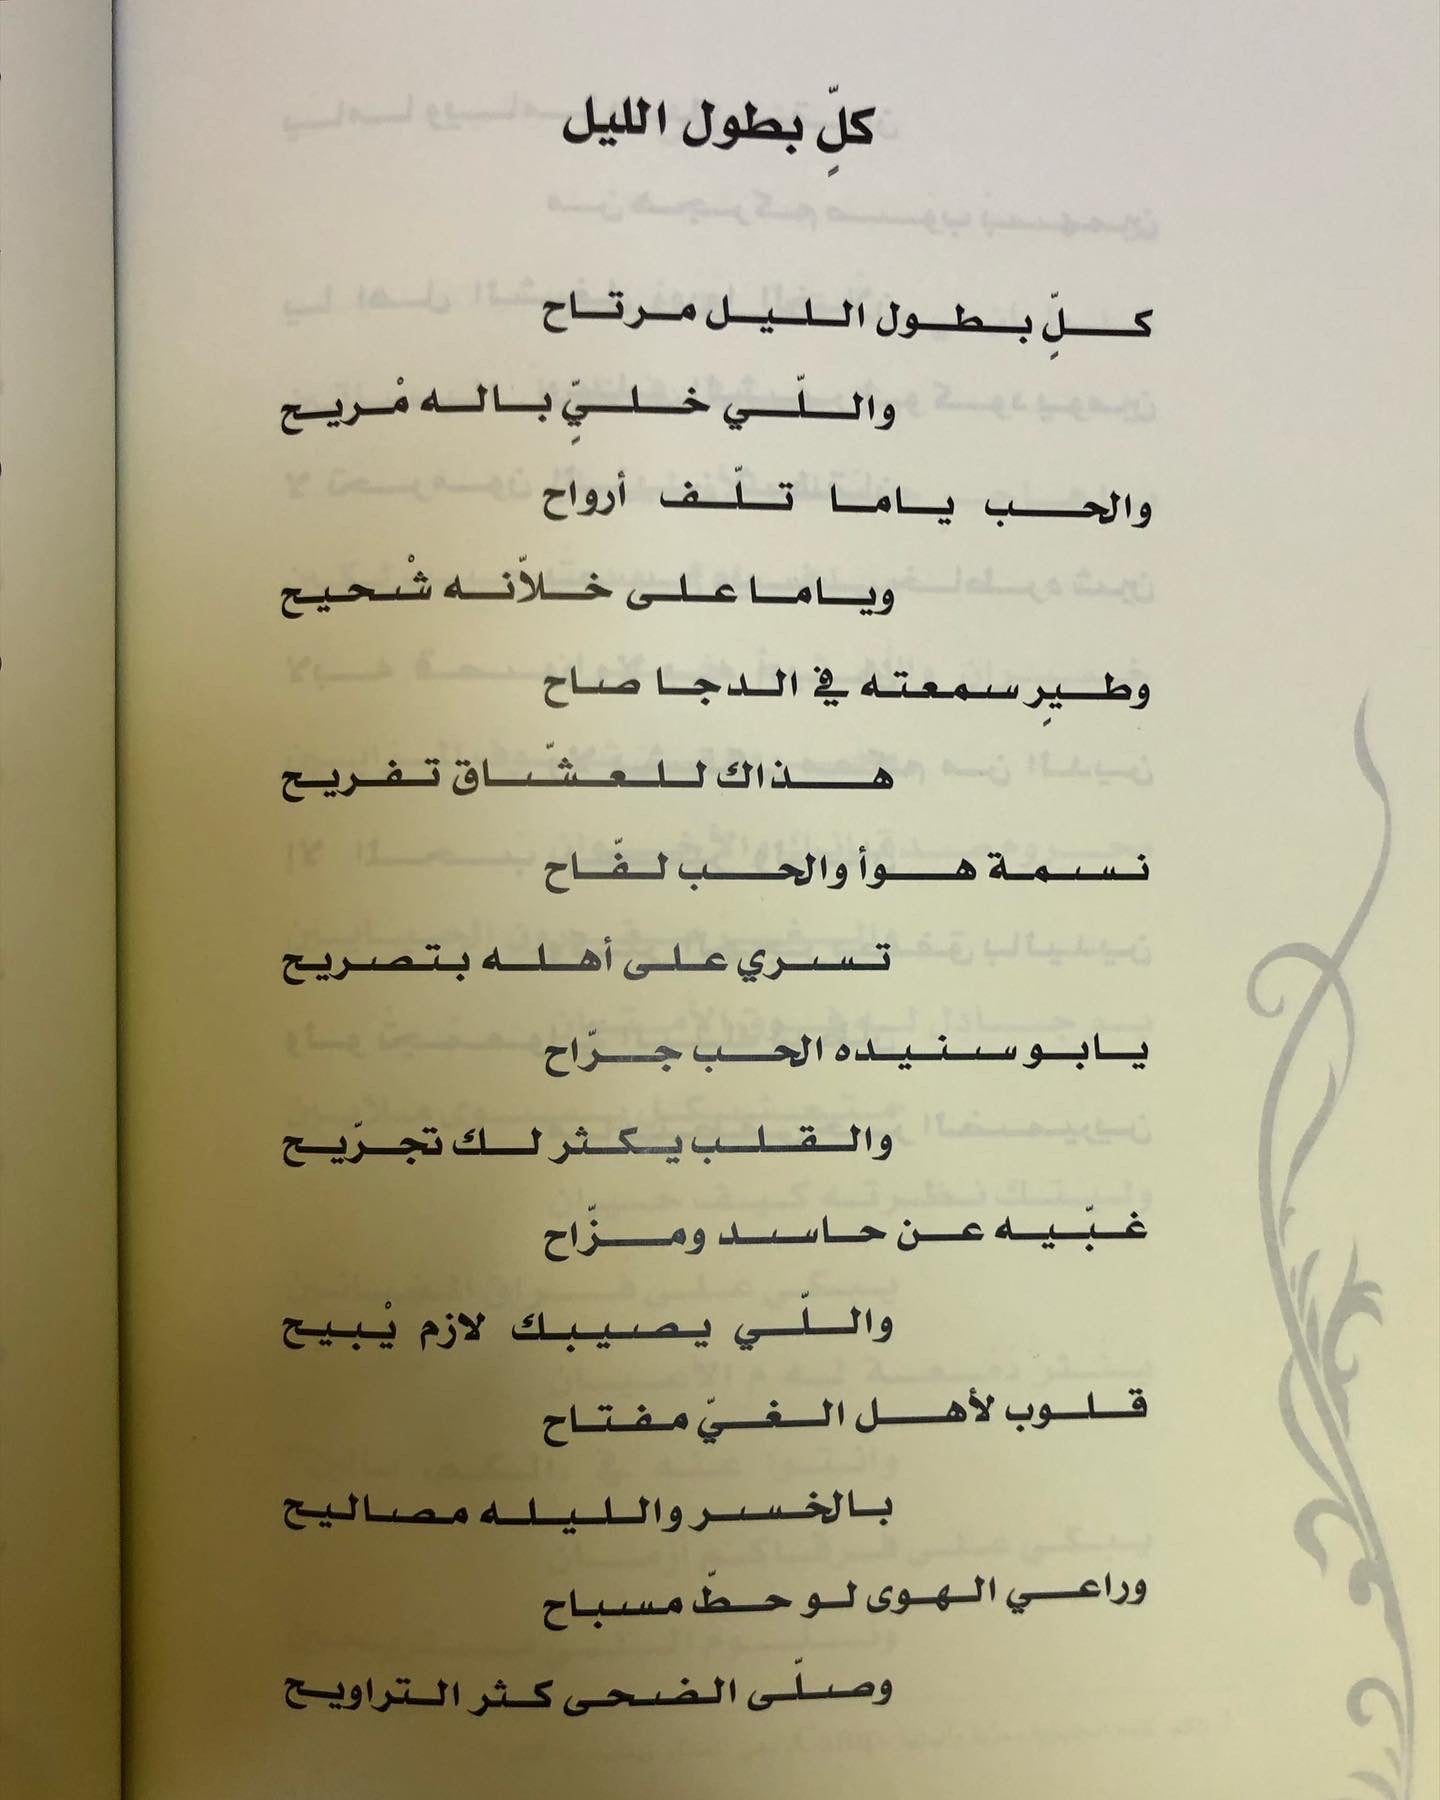 كلِّ بطول الليل
كلِّ بطول الليل مرتاح
واللّي خليِّ باله مْريح
والحب ياما تلّف أرواح
وياما على خلاّنه شْحيح
وطيرِ سمعته في الدجا صاح
هذاك للعشّاق تفريح
نسمة هوأ والحب لفّاح
تسري على أهله بتصريح
يابو سنيده الحب جرّاح
والقلب يكثر لك تجرّيح
غبّيه عن حاسد ومزّاح
واللّي يصيبك لازم يْبيح
قلوب لأهل الغيّ مفتاح
بالخسر والليله مصاليح
وراعي الهوى لو حطّ مسباح
وصلّى الضحى كثر التراويح